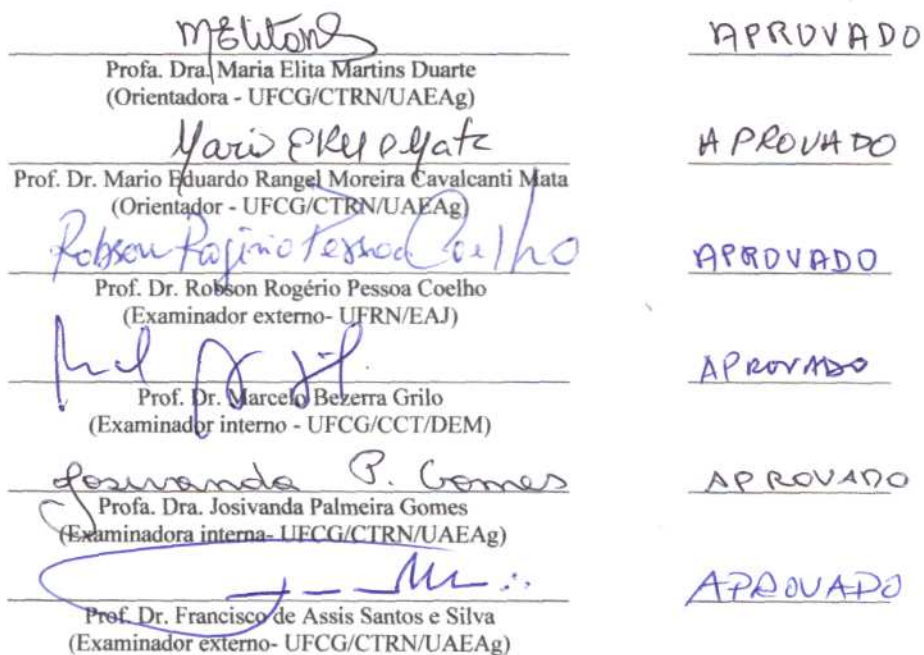 APROVADO
Profa. Dra. Maria Elita Martins Duarte
(Orientadora - UFCG/CTRN/UAEAg)
Mario
APROVADO
Prof. Dr. Mario Eduardo Rangel Moreira Cavalcanti Mata
(Orientador - UFCG/CTRN/UAEAg)
Robson Rogério Pessoa Coelho
APROVADO
Prof. Dr. Robson Rogério Pessoa Coelho
(Examinador externo- UFRN/EAJ)
APROVADO
Prof. Dr. Marcelo Bezerra Grilo
(Examinador interno - UFCG/CCT/DEM)
Josivanda P. Gomes
APROVADO
Profa. Dra. Josivanda Palmeira Gomes
(Examinadora interna- UFCG/CTRN/UAEAg)
APROVADO
Prof. Dr. Francisco de Assis Santos e Silva
(Examinador externo- UFCG/CTRN/UAEAg)